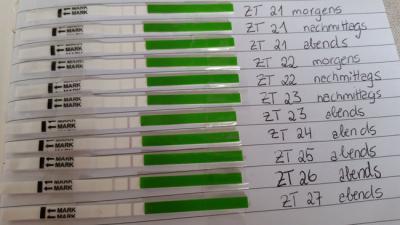 MARK ZT 21 morgens
MARK ZT 21 nachmittags
MARK ZT 21 abends
MARK ZT 22 morgens
MARK ZT 22 nachmittags
MARK ZT 23 nachmittags
MARK ZT 23 abends
MARK ZT 24 abends
MARK ZT 25 abends
MARK ZT 26 abends
MARK ZT 27 abends